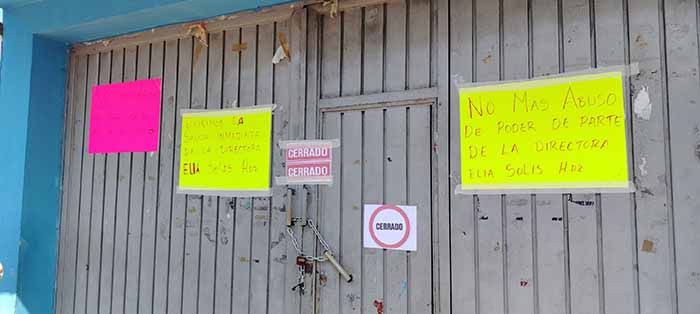 LA
SALIDA INMEDIATA
DE LA DIRECTORA
ELIA SOLIS Hdz
CERRADO
CERRADO
CERRADO
NO MAS ABUSO
DE PODER DE PARTE
DE LA DIRECTORA
ELIA SOLIS Hdz